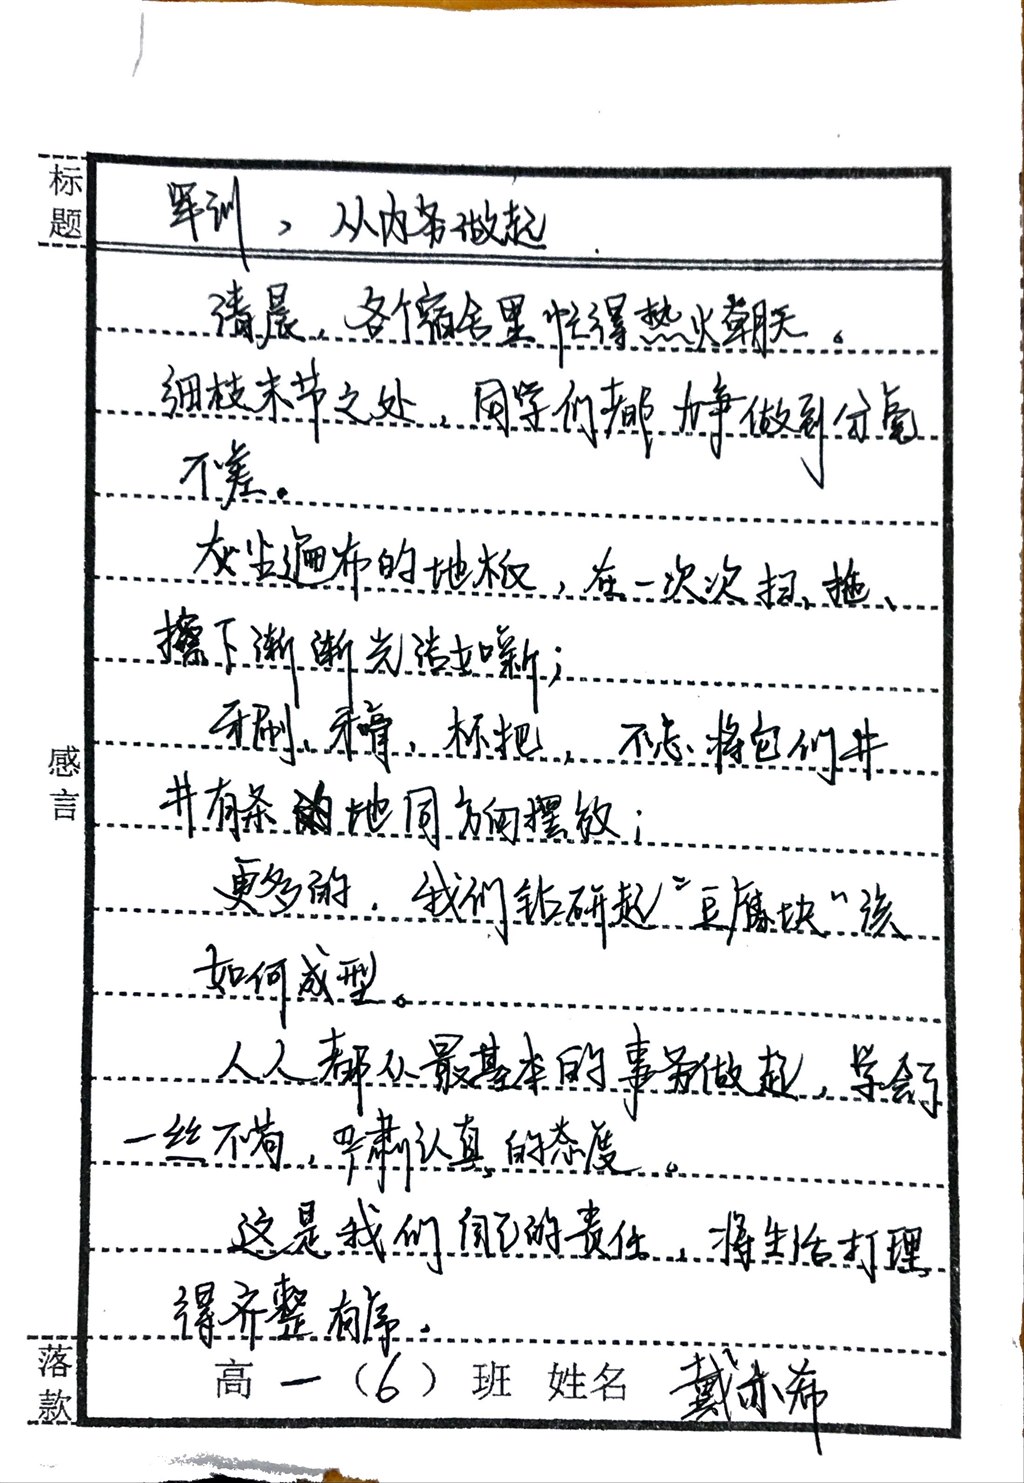 标题
军训,从内务做起
清晨,各个宿舍里忙得热火朝天。
细枝末节之处,同学们都力争做到分毫
不差。
灰尘遍布的地板,在一次次扫、拖、
擦下渐渐光洁如新;
牙刷、牙膏、杯把,不忘将它们井
井有条地同方向摆放;
更多的,我们钻研起“豆腐块”该
如何成型。
感言
人人都从最基本的事务做起,学会了
一丝不苟,严肃认真的态度。
这是我们自己的责任,将生活打理
得齐整有序。
落款
高一(6)班 姓名 戴亦希